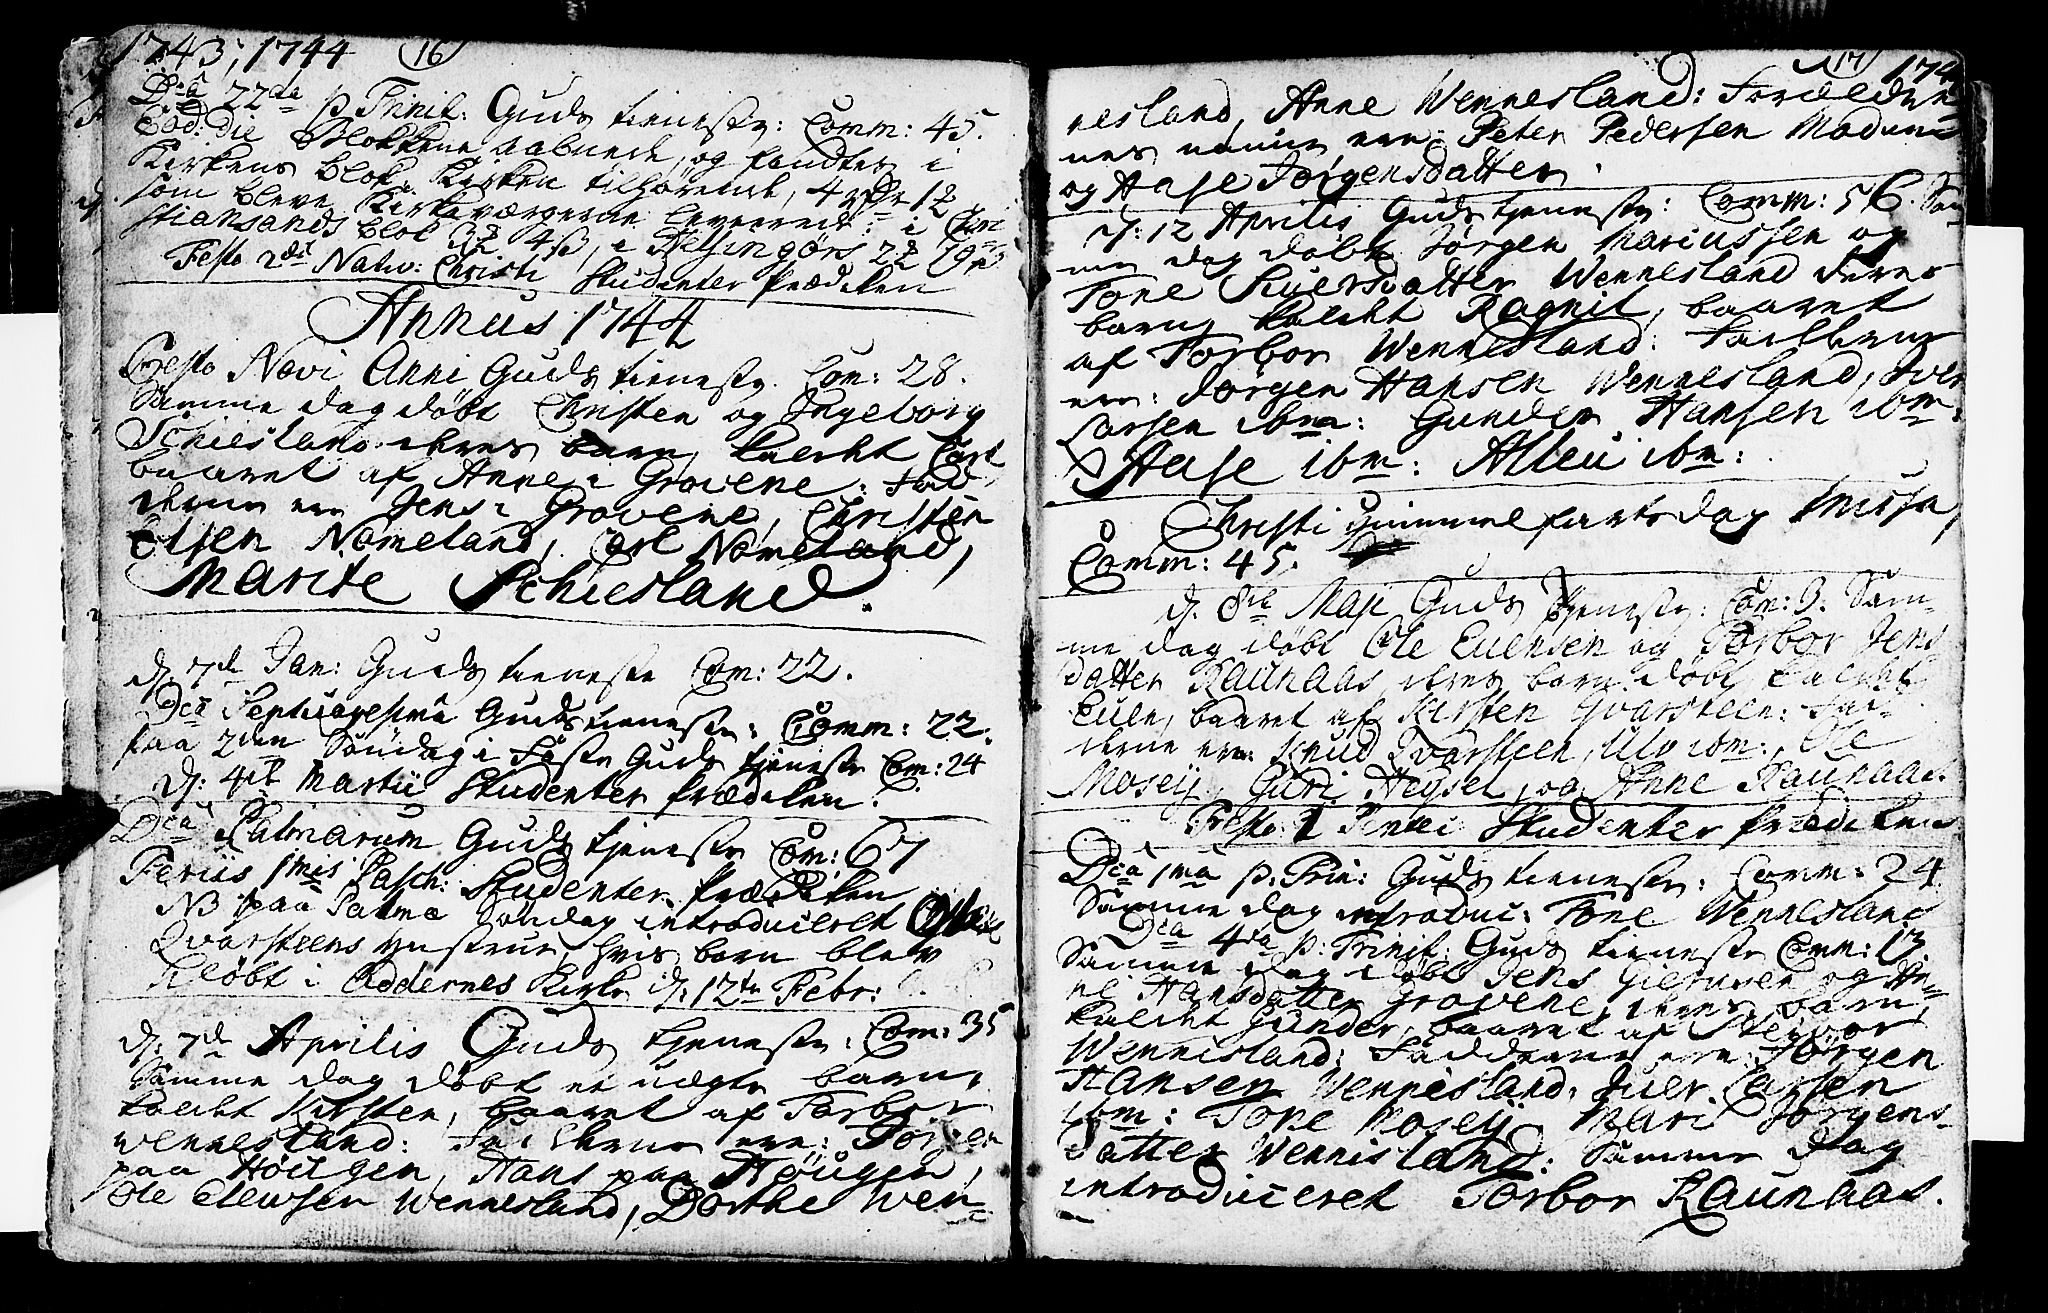 1743, 1744 16
Dca 22da p Trinit: Guds tieneste: Comm: 45.
Eod: die Blokkene aabnede, og fandtes i
Kirkens blok, Kirken tilhørende, 4
som bleve Kirkeværgerne leverede: i Chri-
stiansands blok 4 ß, i Helsingørs
Festo 2di Nativ: Christi Studenter prædiken
Annus 1744
Festo Novi Anni Guds tieneste. Com: 28.
Samme dag døbt Christen og Ingeborg
Schiesland deres barn, kaldt Carl
baaret af Anne i Grovene: Fad-
derne ere Jens i Grovene, Christen
Olsen Nomeland, Carl Nomeland,
Marite Schiesland.
d. 7de Jan: Guds tieneste Com: 22.
Dca Septuagesima Guds tieneste: Comm: 22.
paa 2den Søndag i Faste Guds tjeneste Com: 24
d: 4de Martii Studenter prædiken.
Dca Palmarum Guds tjeneste Com: 67
Feriis 1mis Pasch: Studenter prædiken
NB paa Palme Søndag introduceret
Qvarsteens hustrue, hvis barn blev
døbt i Oddernes Kirke d: 12te Febr:
d: 7de Aprilis Guds tjeneste: Com: 35
Samme dag døbt et uægte barn,
kaldt Kirsten, baaret af Torbor
Wennesland: Fadderne ere: Jørgen
paa Høugen, Hans paa Høugen,
Ole Wennesland, Dorthe Wen-
17 174
nesland, Anne Wennesland: Forældre-
nes navne ere: Peter Pedersen
og Aase Jørgensdatter.
d: 12 Aprilis Guds tjeneste: Comm: 56. Sam-
me dag døbt Jørgen Mariussen og
Tone Siversdatter Wennesland deres
barn, kaldt Ragnil, baaret
af Torbor Wennesland: Fadderne
ere: Jørgen Hansen Wennesland, Iver
Larsen ibm: Gunder Hansen ibm:
Aase ibm: ibm:
Christi Himmelfartsdag Messa,
Comm: 45.
d. 8de Maji Guds tjeneste: Com: 9. Sam-
me dag døbt Ole Euensen og Torbor Jens
datter Raunaas, deres barn døbt, kaldet
Euen, baaret af Kirsten Qvarsteen: Fad-
derne ere Knud Qvarsteen, ibm:, Ole
Moseij, Guri Heysel, og Anne Raunaas.
Festo 1 Pentec: Studenter prædiken
Dca 1ma p. Trin: Guds tieneste: Comm: 24.
Samme dag introduc: Tone Wennesland
Dca 4ta p: Trinit: Guds tieneste Comm: 13
Samme dag døbt Jens og An-
ne Hansdatter Grovene, deres barn,
kaldet Gunder, baaret af
Wennesland: Fadderne ere: Jørgen
Hansen Wennesland, Iver Larsen
ibm: Tone Moseij, Mari Jørgens-
datter Wennesland: Samme dag
introduceret Torbor Raunaas.